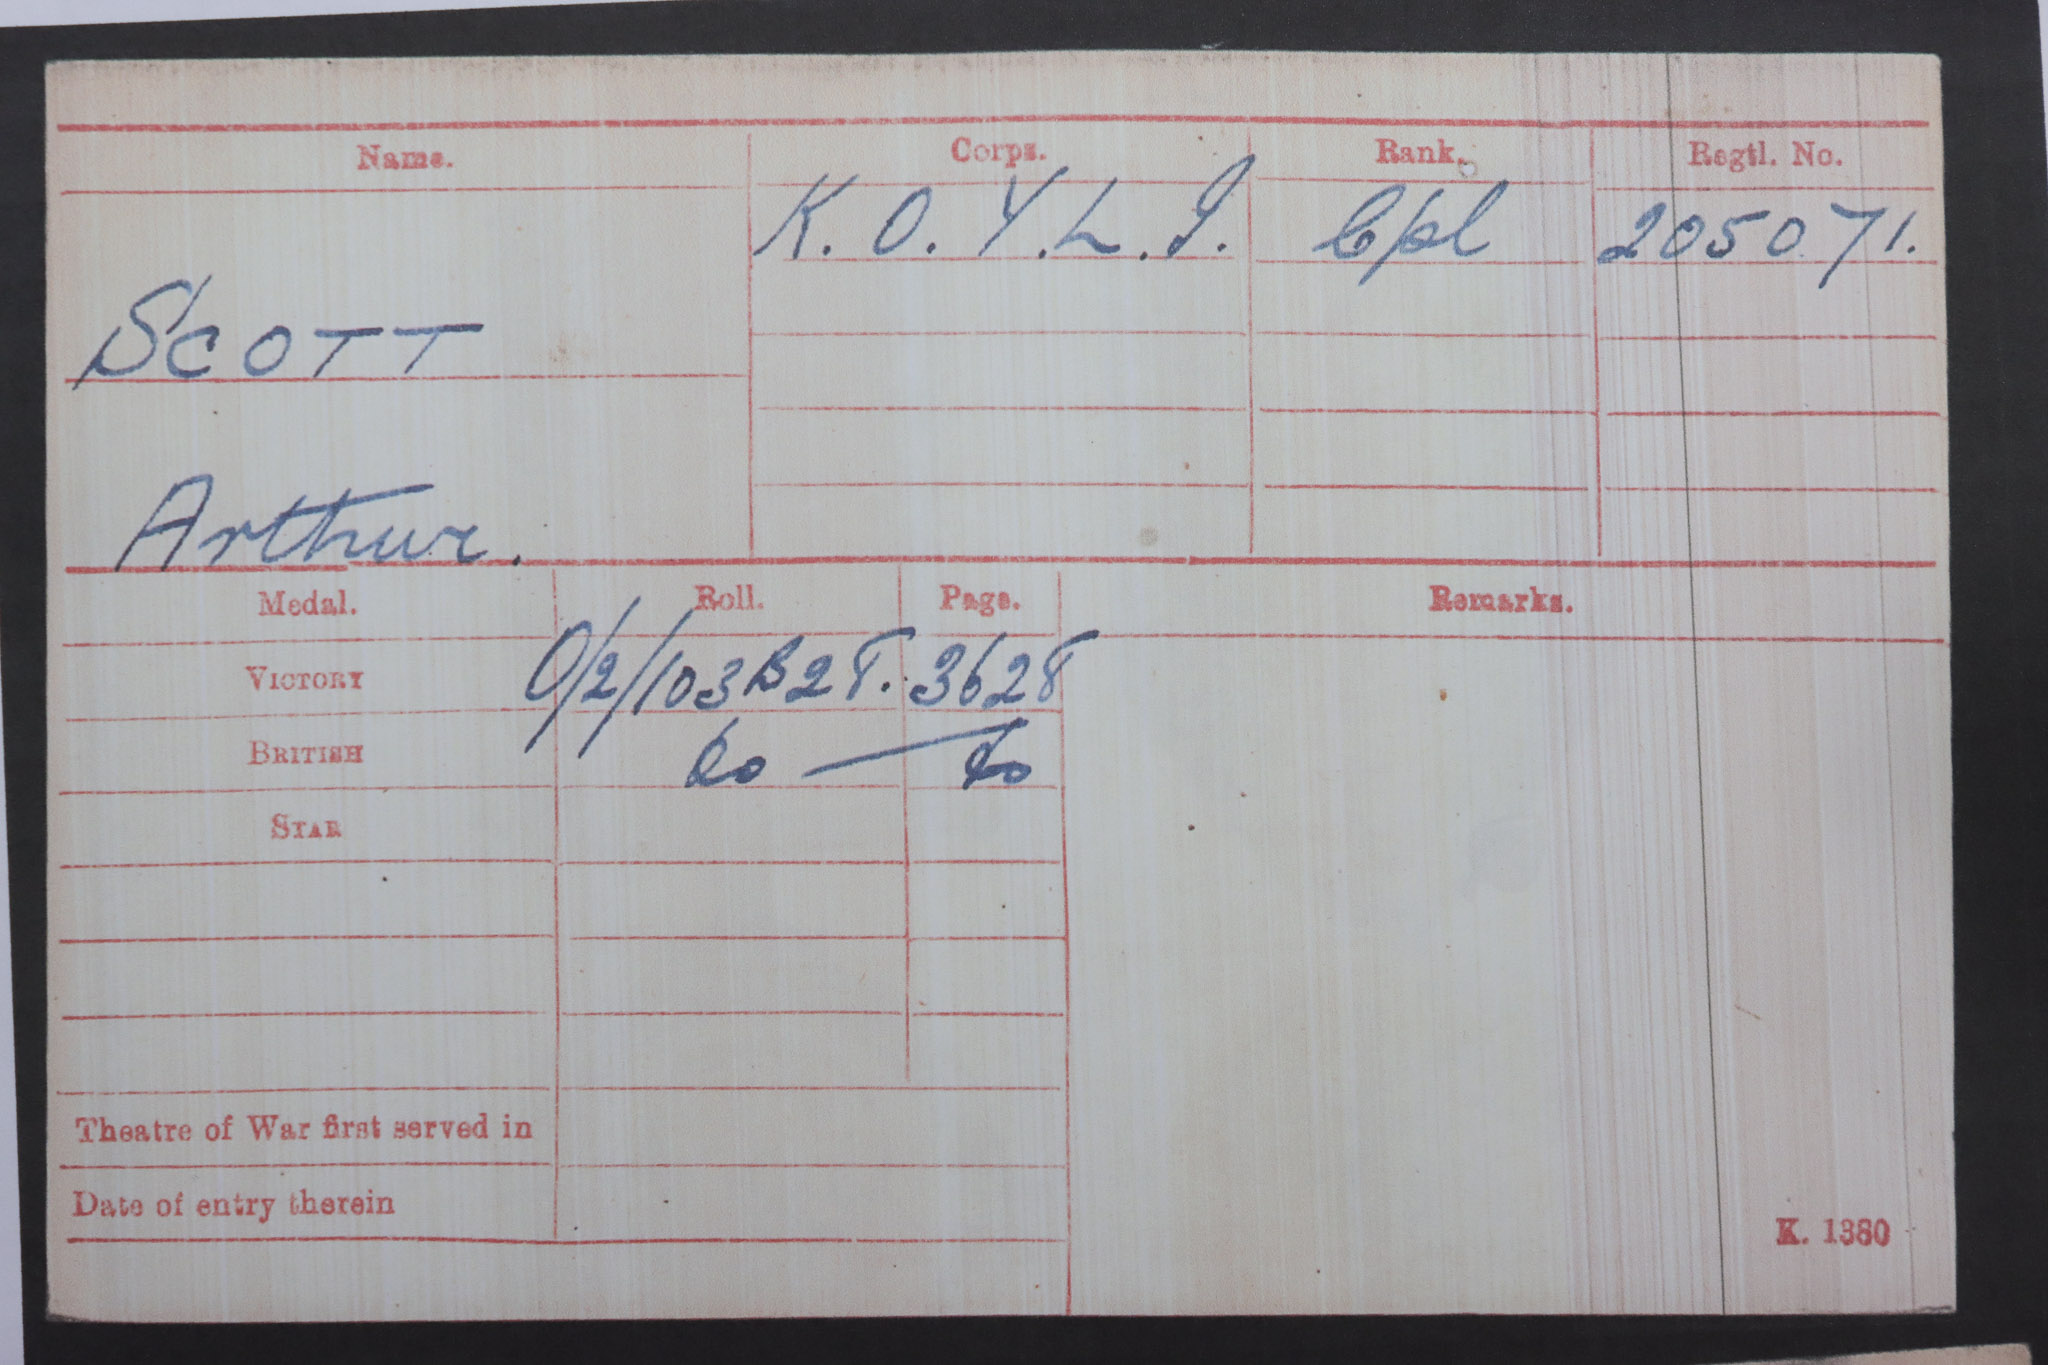 Name. Corps. Rank. Regtl. No.
K. O. Y. L. I. Cpl 205071.
SCOTT
Arthur.
Medal. Roll. Page. Remarks.
VICTORY O/2/103 B28. 3628
BRITISH do — do
STAR
Theatre of War first served in
Date of entry therein
K. 1380